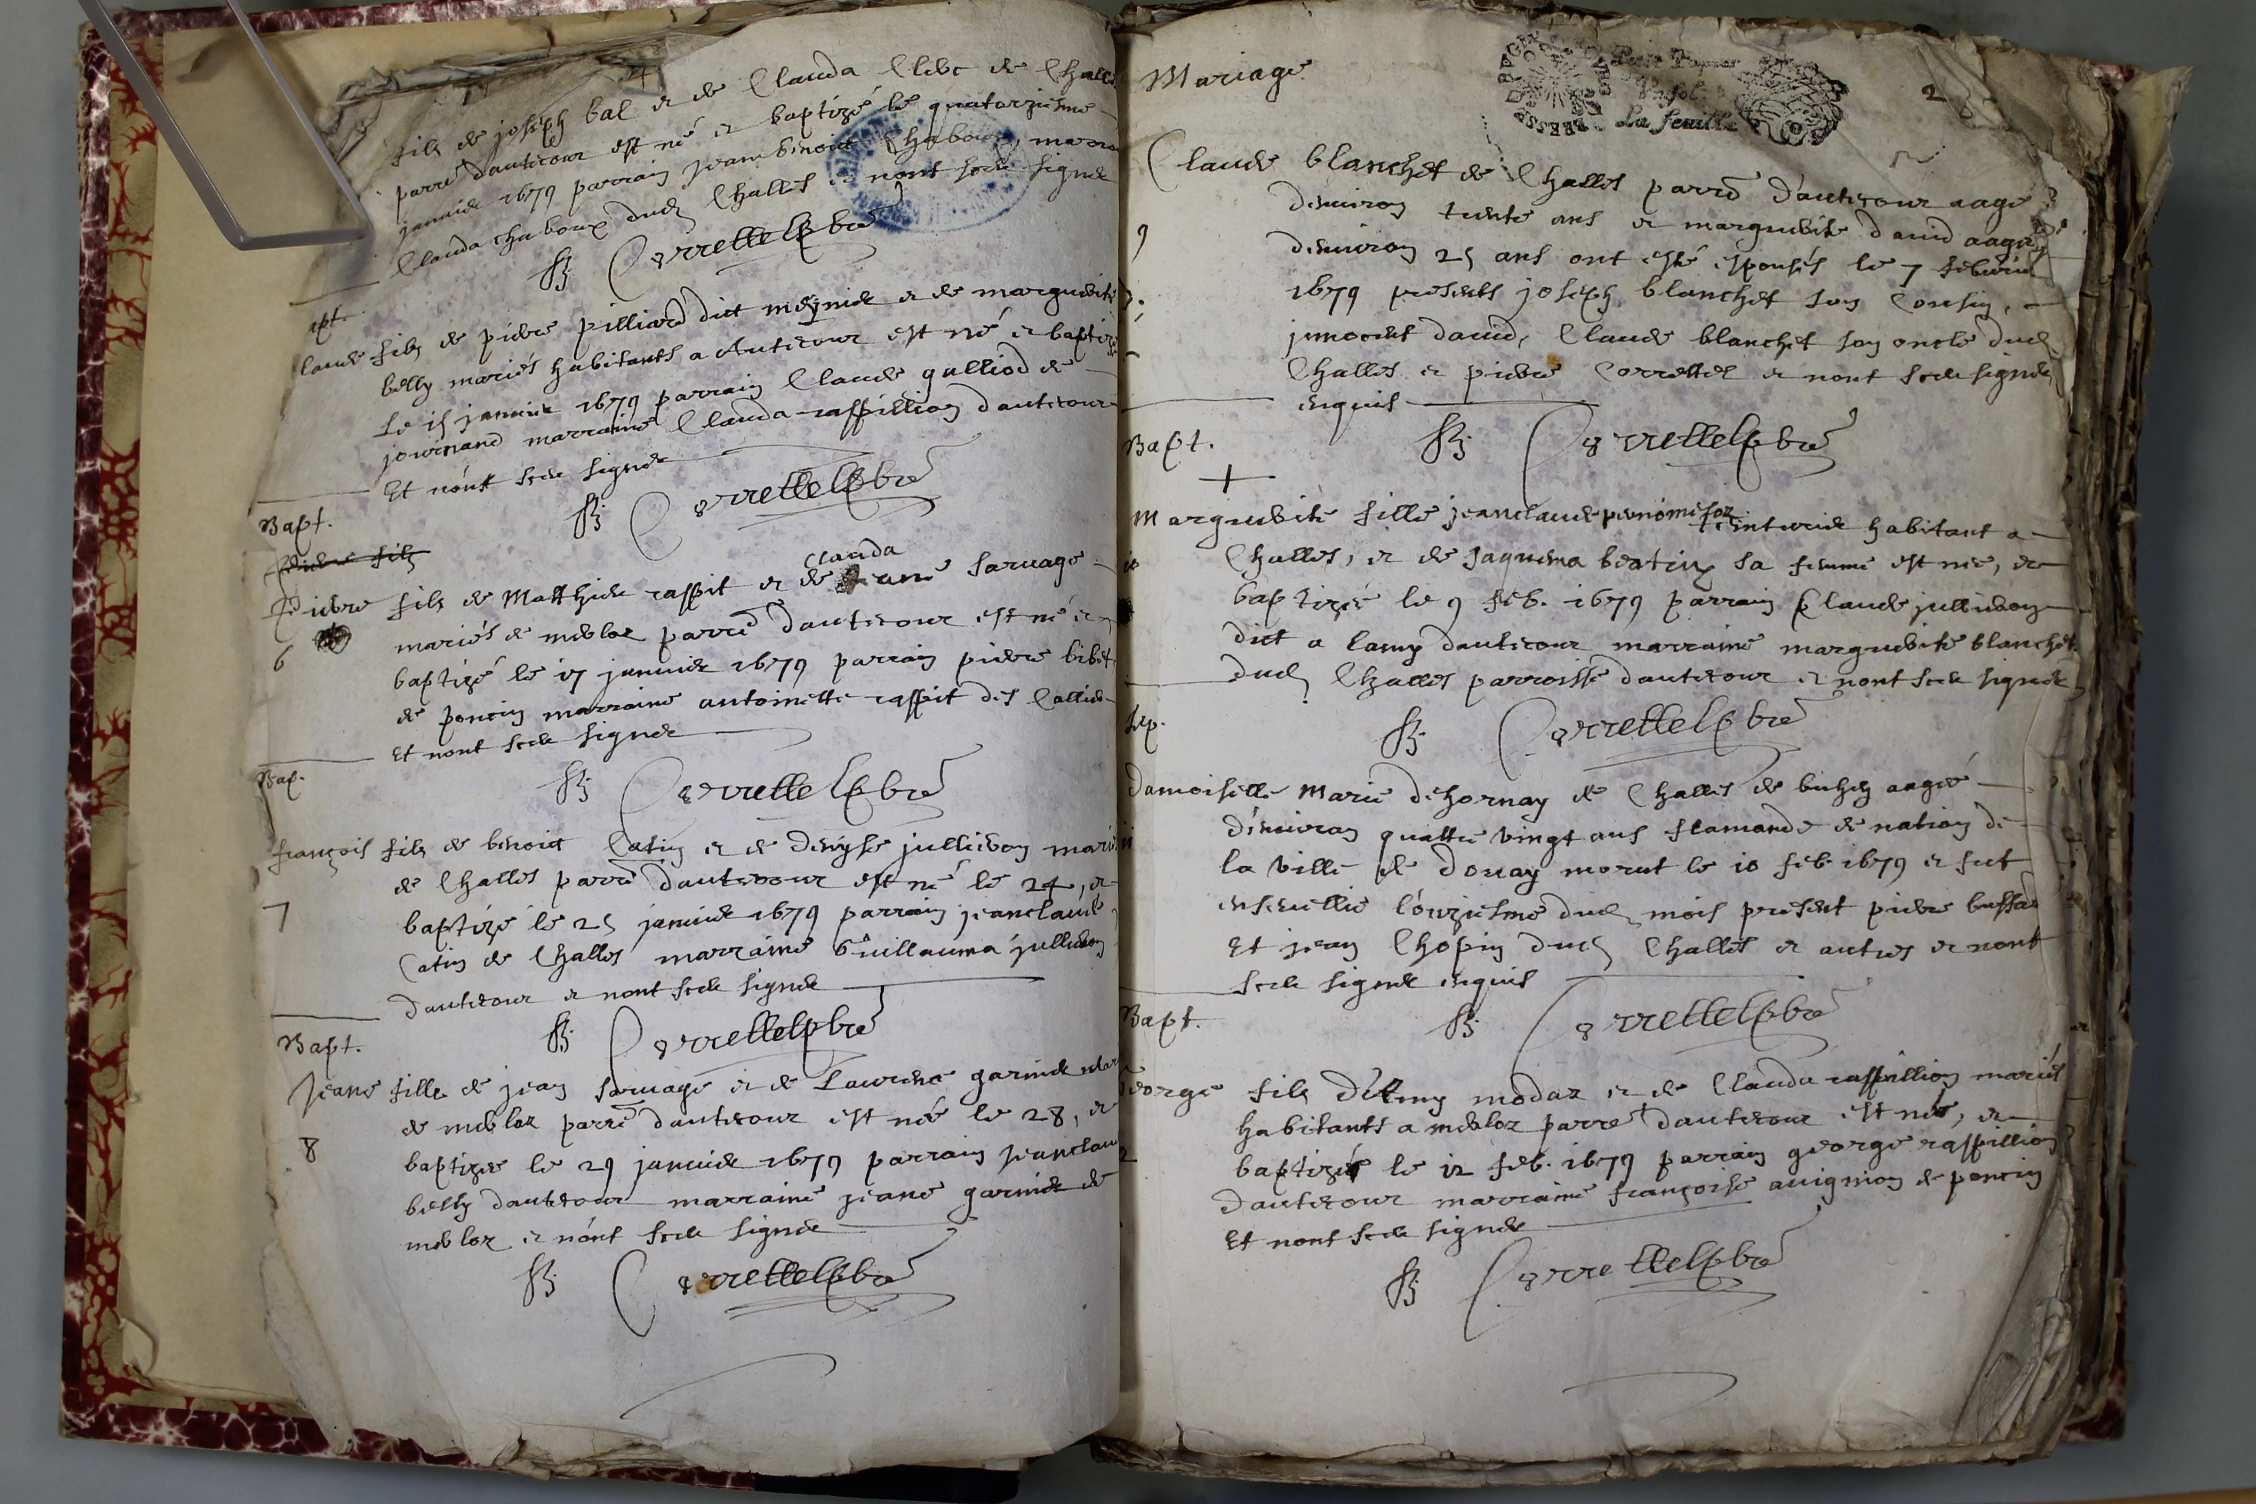 4
fils de joseph bal et de Clauda Clerc de Challes
parre d'autecour est né et baptizé le quatorziesme
janvier 1679 parrain jean benoict Chaboux, marra
Clauda chaboux dud Challes et nont sceu signer
Correttel pbre
apt.
laude fils de pierre pilliard dict meynier et de marguerite
belly mariés habitants a Autecour est né et baptizé
Le 15 janvier 1679 parrain Claude gulliod de
journand marraine Clauda raffillion dautecour
Et nont sceu signer
Correttel pbre
Bapt.
Pierre fils
Clauda
Pierre fils de Matthieu raffit et de jeane sarvage
mariés de merloz parre dautecour est né et
baptizé le 17 janvier 1679 parrain pierre bibet
6
de poncin marraine antoinette raffit des Callie
Et nont sceu signer
Correttel pbre
Bap.
françois fils de benoict Catin et de denyse jullieron mariés
de Challes parre dautecour est né le 24, et
7
baptizé le 25 janvier 1679 parrain jeanclaude
Catin de Challes marraine Guillauma jullieron
dautecour et nont sceu signer
Correttel pbre
Bapt.
Jeane fille de jean sarvage et de Laurence garnier
de merloz parre dautecour est née le 28, et
8
baptizée le 29 janvier 1679 parrain Jeanclau
belly dautecour marraine jeane garnier de
merloz et nont sceu signer
Correttel pbre
Mariage
Petit Papier
La feuille
2
Claude blanchet de Challes parre d'autecour aagé
denviron trente ans et marguerite david aagée
9
denviron 25 ans ont esté espousés le 7 febvrier
1679 presents joseph blanchet son Cousin,
jnnocent david, Claude blanchet son oncle dud
Challes et pierre Correttel et nont sceu signer
enquis
Correttel pbre
Bapt.
Marguerite fille jeanclaude teinturier habitant a
Challes, et de Jaquema beatrix sa femme est née, et
10
baptizée le 9 feb. 1679 parrain Claude jullieron
dict a lamy dautecour marraine marguerite blanchet
dud Challes parroisse dautecour et nont sceu signer
Correttel pbre
sep.
Damoiselle Marie dehornay de Challes de aagée
denviron quattre vingt ans flamande de nation de
11
la ville de Douay morut le 10 feb. 1679 et fut
ensevellie l'onziesme dud mois present pierre buffa
Et jean Chopin dud Challes et autres et nont
sceu signer enquis
Correttel pbre
Bapt.
George fils d'Emy modaz et de Clauda raffillion mariés
habitants a merloz parre dautecour est né, et
12
baptizé le 12 feb. 1679 parrain george raffillion
dautecour marraine françoise avignion de poncin
Et nont sceu signer
Correttel pbre